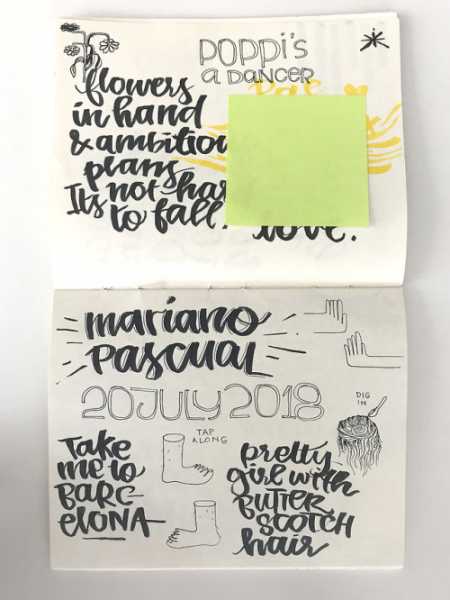 POPPi's
a DANCER
flowers
in hand
& ambitiou
plans
Its not har
to fall.
love.
mariano
PASCUAL
20JULY2018
DIG
IN
TAP
ALONG
Take
me to
BARC-
elONA
pretty
girl with
BUTTER
SCOTCH
hair